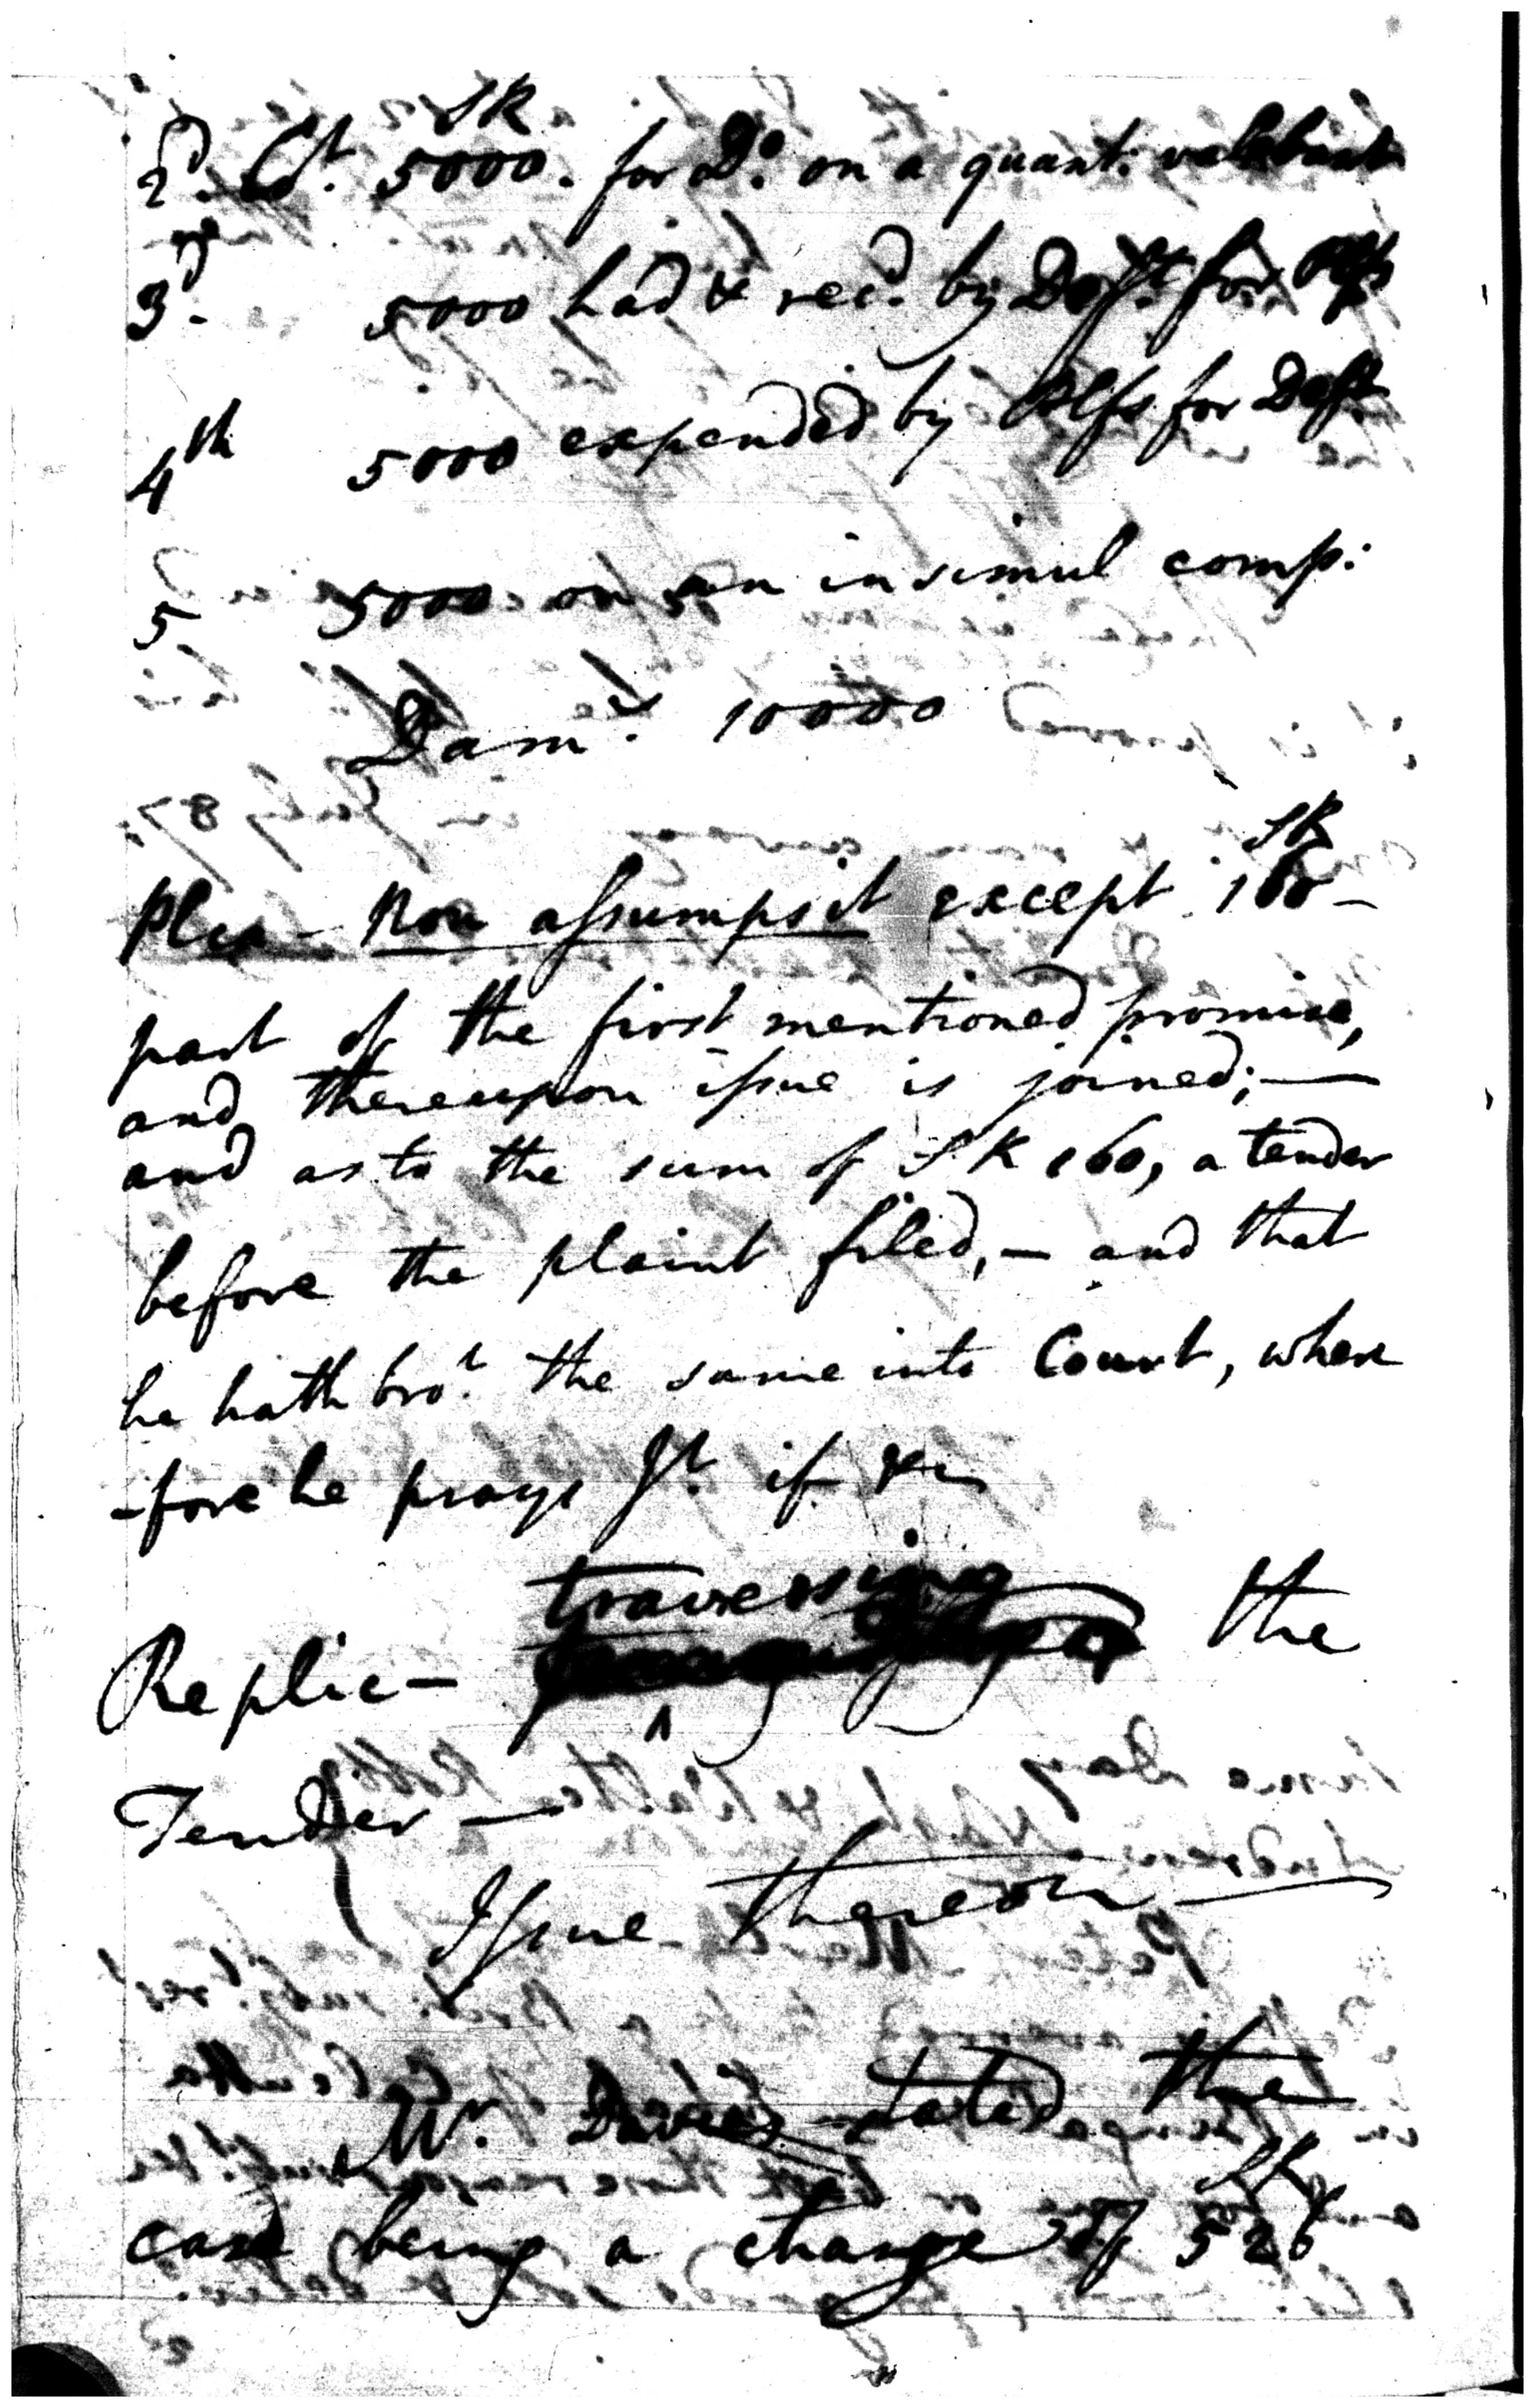 SR
2d. Ct. 5000. for Do. on a quant: valebant
3d. 5000 had & recd. by Deft for Plfs
4th 5000 expended by Plfs for Deft
5 5000 on an insimul comp:
Dams. 10000
SR
Plea - Non assumpsit except 160 -
part of the first mentioned promise,
and thereupon issue is joined; —
and as to the sum of SR 160, a tender
before the plaint filed, — and that
he hath brot. the same into Court, where
-fore he prays Jt. if &c
traversing
Replic - the
Tender —
Issue thereon —
Mr. Davies stated the
SR
case being a charge of 526